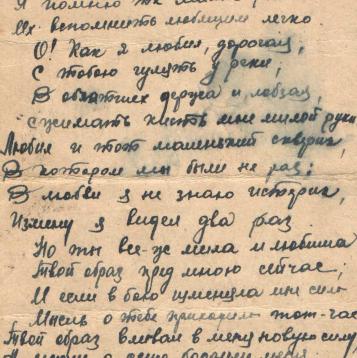 Я помню
Их вспомнить любящим легко.
О! Как я любил, дорогая,
С тобою гулять у реки,
В объятиях держа и лобзая,
сжимать кисть мне милой руки
Любил и тот маленький скверик,
В котором мы были не раз;
В любви я не знаю истерик,
Измену я видел два раз
Но ты все-же мила и любима
Твой образ пред мною сейчас;
И если в бою изменяла мне сила
Мысль о тебе приходила тот-час
Твой образ вливал в меня новую силу